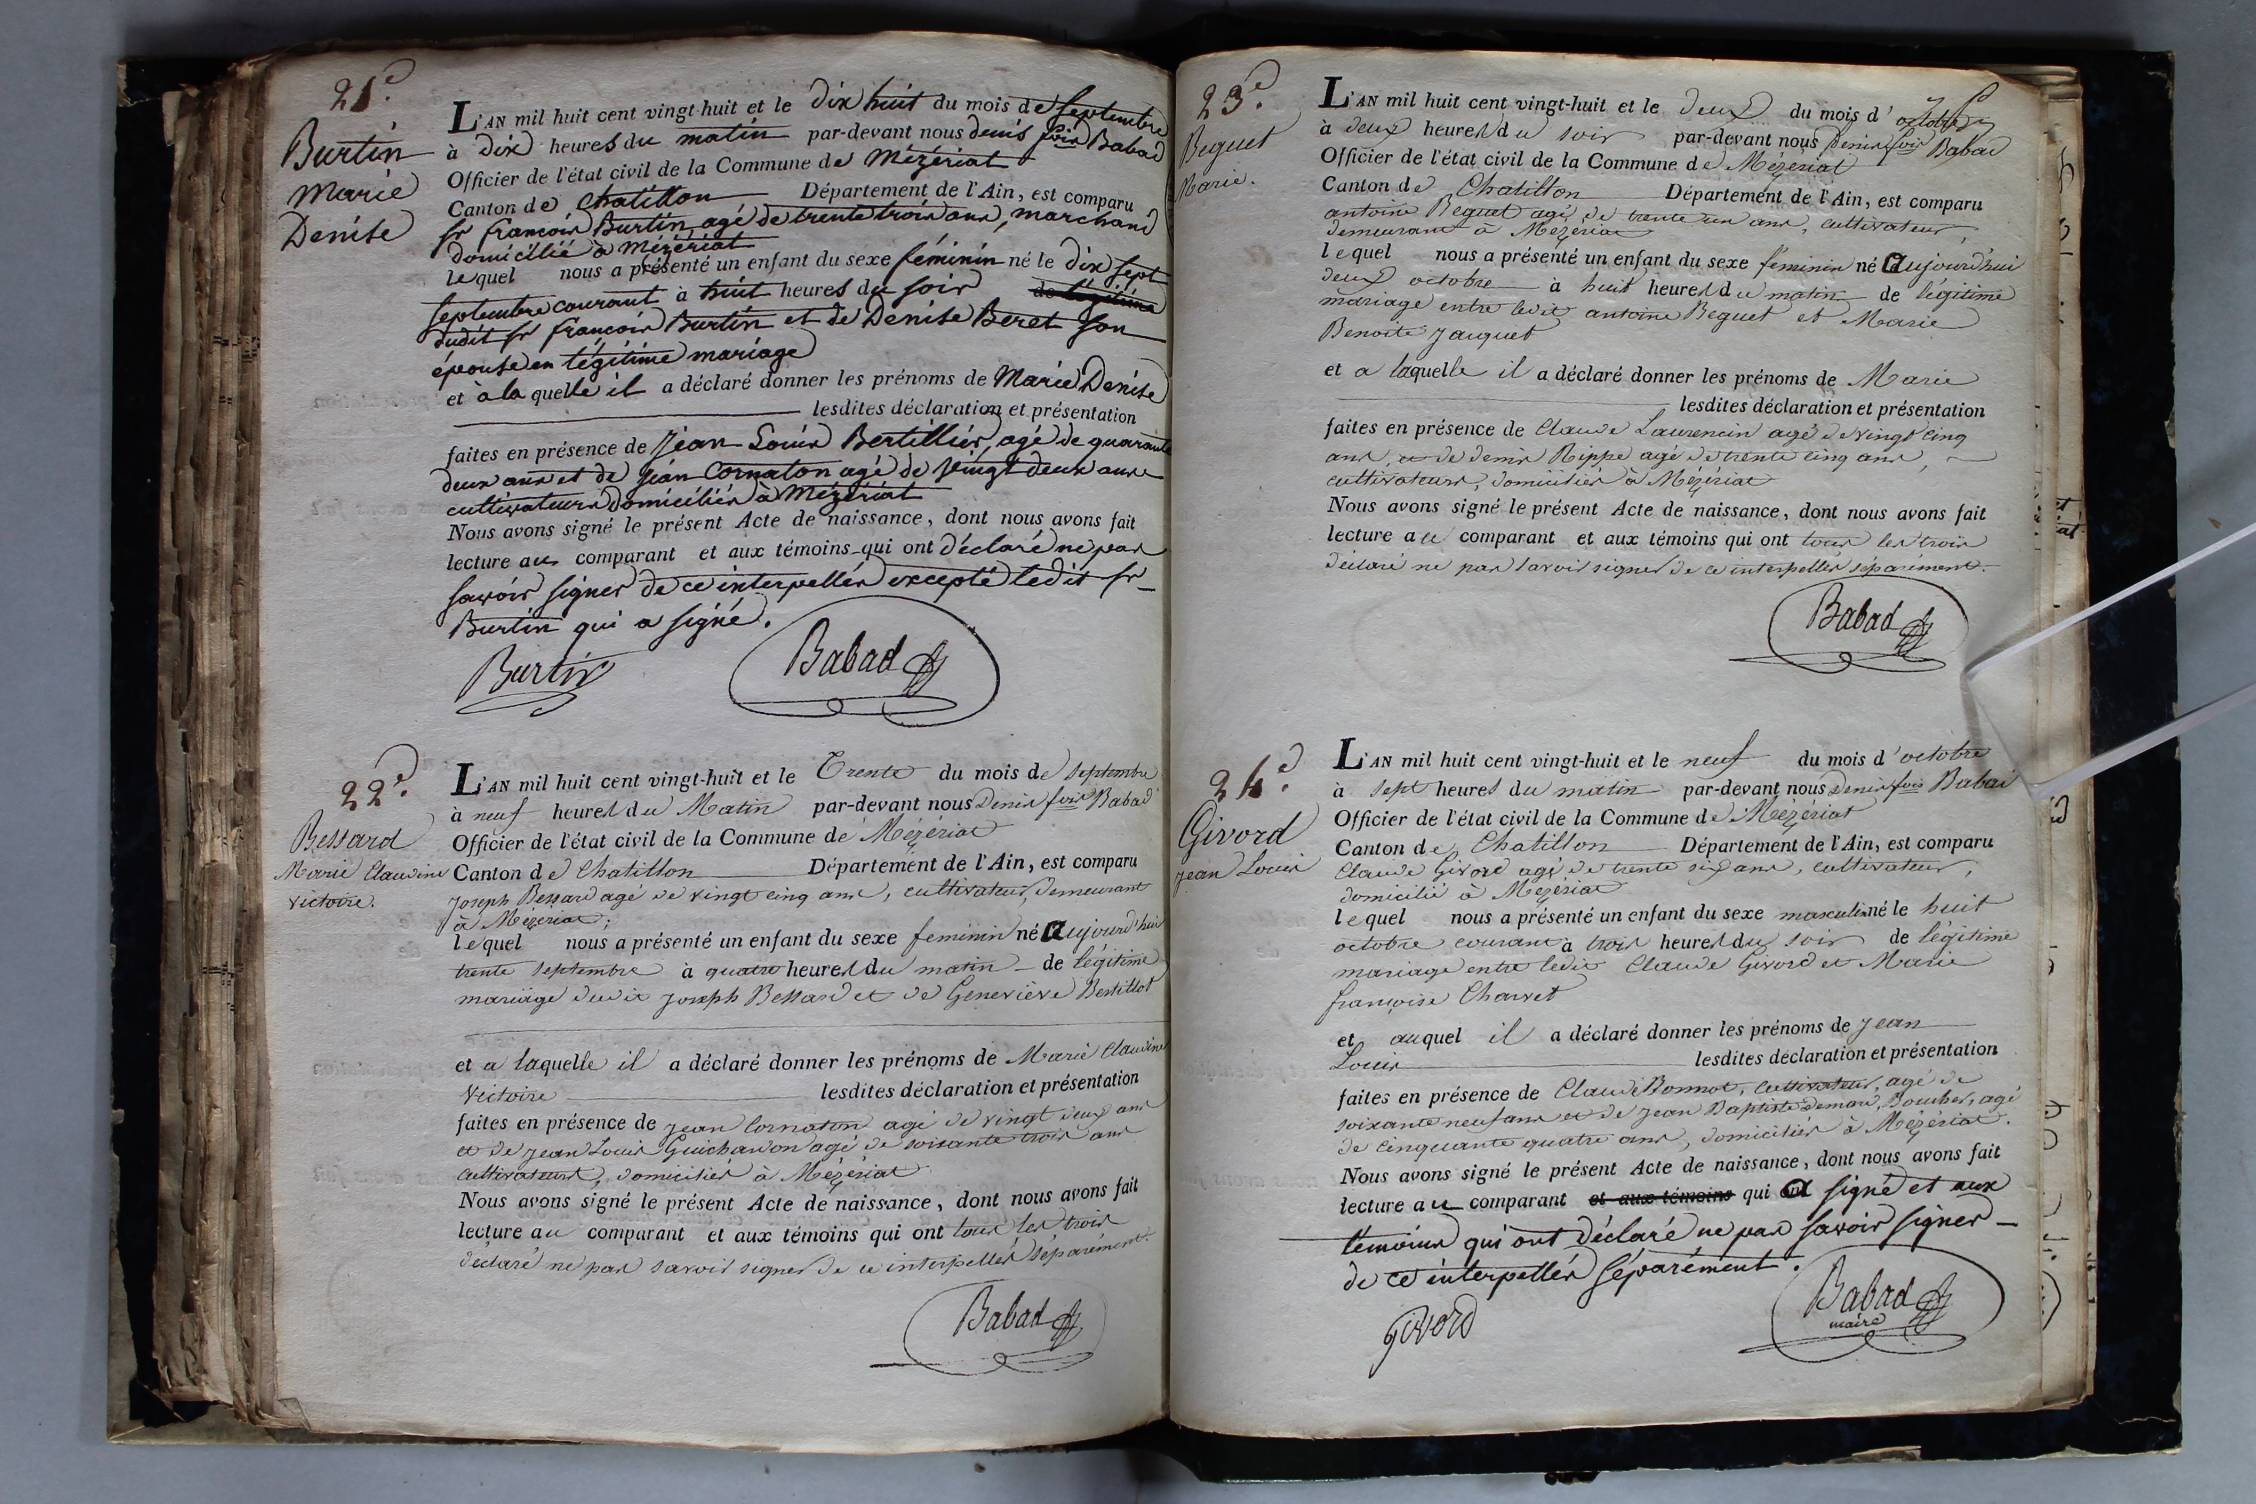 21.e
Burtin
Marie
Denise
L'AN mil huit cent vingt-huit et le dix huit du mois de Septembre
à dix heures du matin par-devant nous denis fois Babad
Officier de l'état civil de la Commune de Mézériat
Canton de Chatillon Département de l'Ain, est comparu
sr françois Burtin agé de trente trois ans, marchand
domicilié à Mézériat
lequel nous a présenté un enfant du sexe féminin né le dix sept
septembre courant à huit heures du soir de légitime
dudit sr françois Burtin et de Denise Beret son
épouse en légitime mariage
et à laquelle il a déclaré donner les prénoms de Marie Denise
lesdites déclaration et présentation
faites en présence de Jean Louis Bertillier, agé de quarante
deux ans et de Jean Cornaton agé de vingt deux ans
cultivateurs domiciliés à Mézériat
Nous avons signé le présent Acte de naissance, dont nous avons fait
lecture au comparant et aux témoins qui ont déclaré ne pas
savoir signer de ce interpellés excepté ledit sr
Burtin qui a signé.
Burtin Babad
22.e
Bessard
Marie Claudine
Victoire.
L'AN mil huit cent vingt-huit et le Trente du mois de Septembre
à neuf heures du Matin par-devant nous Denis fois Babad
Officier de l'état civil de la Commune de Mézériat
Canton de Chatillon Département de l'Ain, est comparu
Joseph Bessard agé de vingt cinq ans, cultivateur, demeurant
à Mézériat;
lequel nous a présenté un enfant du sexe feminin né Aujourd'hui
trente septembre à quatre heures du matin de légitime
mariage dudit Joseph Bessard et de Geneviève Bertillot
et a laquelle il a déclaré donner les prénoms de Marie Claudine
Victoire lesdites déclaration et présentation
faites en présence de Jean Cornaton agé de vingt deux ans
et de Jean Louis Guichardon agé de soixante trois ans
cultivateurs, domiciliés à Mézériat
Nous avons signé le présent Acte de naissance, dont nous avons fait
lecture au comparant et aux témoins qui ont tous les trois
déclaré ne pas savoir signer de ce interpellés séparément.
Babad
23.e
Beguet
Marie.
L'AN mil huit cent vingt-huit et le deux du mois d'octobre
à deux heures du soir par-devant nous Denis fois Babad
Officier de l'état civil de la Commune de Mézériat
Canton de Chatillon Département de l'Ain, est comparu
antoine Beguet agé de trente un ans, cultivateur,
demeurant à Mézériat
lequel nous a présenté un enfant du sexe féminin né Aujourd'hui
deux octobre à huit heures du matin de légitime
mariage entre ledit antoine Beguet et Marie
Benoite Jauquet
et a laquelle il a déclaré donner les prénoms de Marie
lesdites déclaration et présentation
faites en présence de Claude Laurencin agé de vingt cinq
ans, et de denis Rippe agé de trente cinq ans,
cultivateurs, domiciliés à Mézériat
Nous avons signé le présent Acte de naissance, dont nous avons fait
lecture au comparant et aux témoins qui ont tous les trois
déclaré ne pas savoir signer de ce interpellés séparément.
Babad
24.e
Givord
Jean Louis
L'AN mil huit cent vingt-huit et le neuf du mois d'octobre
à sept heures du matin par-devant nous Denis fois Babad
Officier de l'état civil de la Commune de Mézériat
Canton de Chatillon Département de l'Ain, est comparu
Claude Givord agé de trente six ans, cultivateur,
domicilié à Mézériat
lequel nous a présenté un enfant du sexe masculin né le huit
octobre courant à trois heures du soir de légitime
mariage entre ledit Claude Givord et Marie
françoise Charvet
et auquel il a déclaré donner les prénoms de Jean
Louis lesdites déclaration et présentation
faites en présence de Claude Bonnot, cultivateur, agé de
soixante neuf ans et de Jean Baptiste Boucher, agé
de cinquante quatre ans, domiciliés à Mézériat.
Nous avons signé le présent Acte de naissance, dont nous avons fait
lecture au comparant et aux témoins qui a signé et aux
témoins qui ont déclaré ne pas savoir signer
de ce interpellés séparément.
Givord Babad
maire